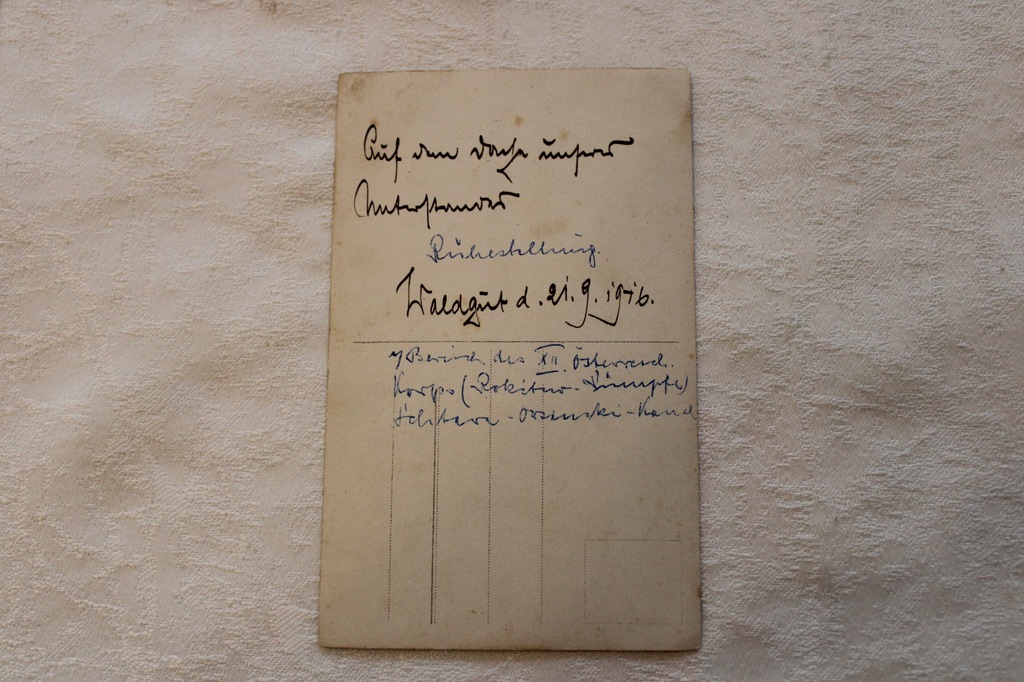 Auf dem Dache unseres
Unterstandes
Ruhestellung.
Waldgut d. 21.9.1916.
Bereich des XII. Österreich.
Korps (Rokitno-Sümpfe)